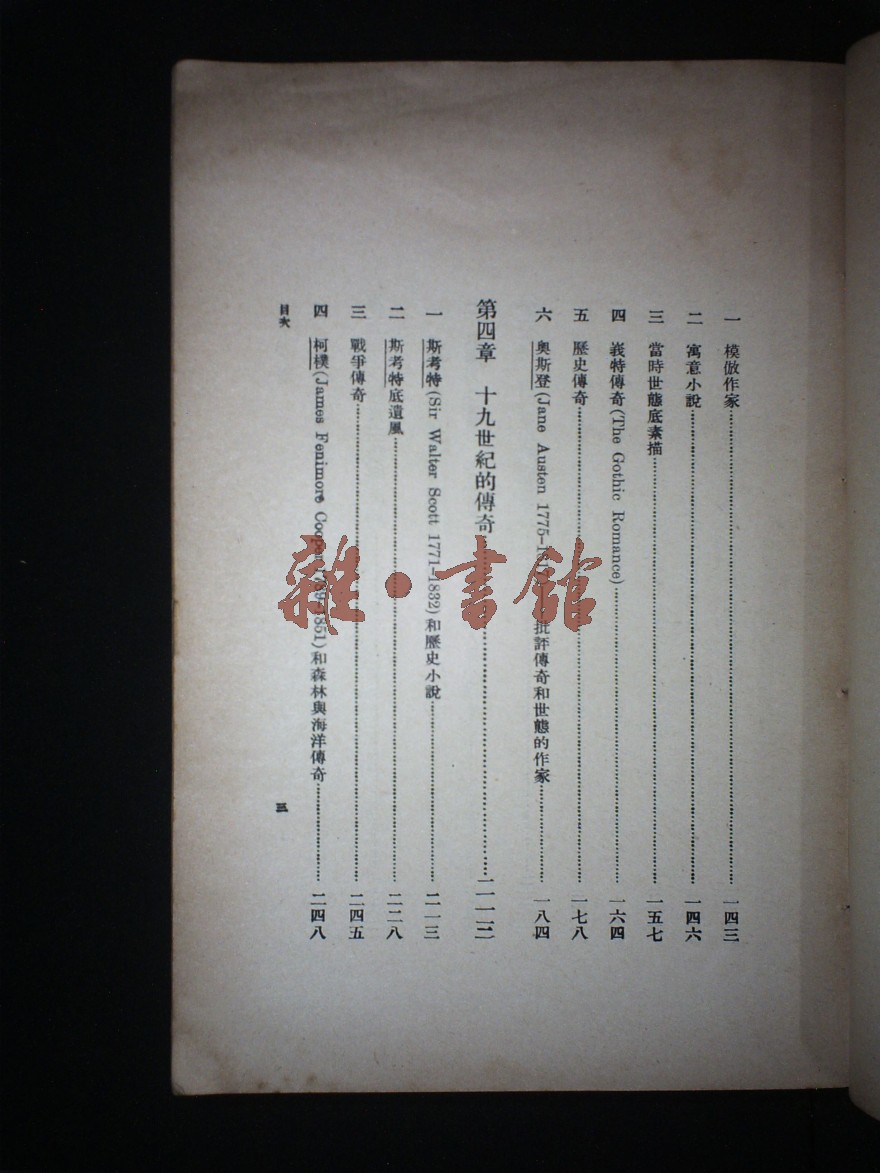 一 模倣作家 一四三
二 寓意小說 一四六
三 當時世態底素描 一五七
四 峩特傳奇(The Gothic Romance) 一六四
五 歷史傳奇 一七八
六 奧斯登(Jane Austen 1775-181 批評傳奇和世態的作家 一八四
第四章 十九世紀的傳奇
一 斯考特(Sir Walter Scott 1771-1832)和歷史小說 二一三
二 斯考特底遺風 二二八
三 戰爭傳奇 二四五
四 柯樸(James Fenimore Cooper 1789-1851)和森林與海洋傳奇 二四八
目次
三
雜·書館